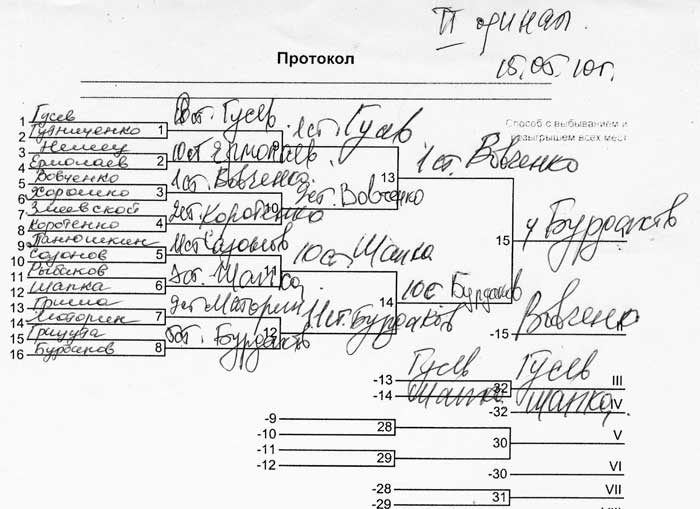 II финал
15.05.10г.
Протокол
Способ с выбыванием и
розыгрышем всех мест
1 Гусев
2 Гудниченко
3 Немец
4 Ермолаев
5 Вовченко
6 Хоролко
7 Змеевской
8 Коротенко
9 Панюшкин
10 Сазонов
11 Рыбаков
12 Шапка
13 Гришла
14 Моторин
15 Грицута
16 Бурдаков
1 ст. Гусев
2 10 ст Ермолаев
3 1 ст. Вовченко
4 2 ст. Коротенко
5 11 ст Сазонов
6 ст. Шапка
7 9 ст. Моторин
8 ст. Бурдаков
ст. Гусев
10 ст. Вовченко
10 ст. Шапка
12 11 ст. Бурдаков
13 1 ст. Вовченко
14 10 ст Бурдаков
15 Ч Бурдаков
-15 Вовченко
II
-13 Гусев
-14 Шапка
32 Гусев III
-32 Шапка IV
-9
-10
28
-11
-12
29
30 V
-30 VI
-28
-29
31 VII